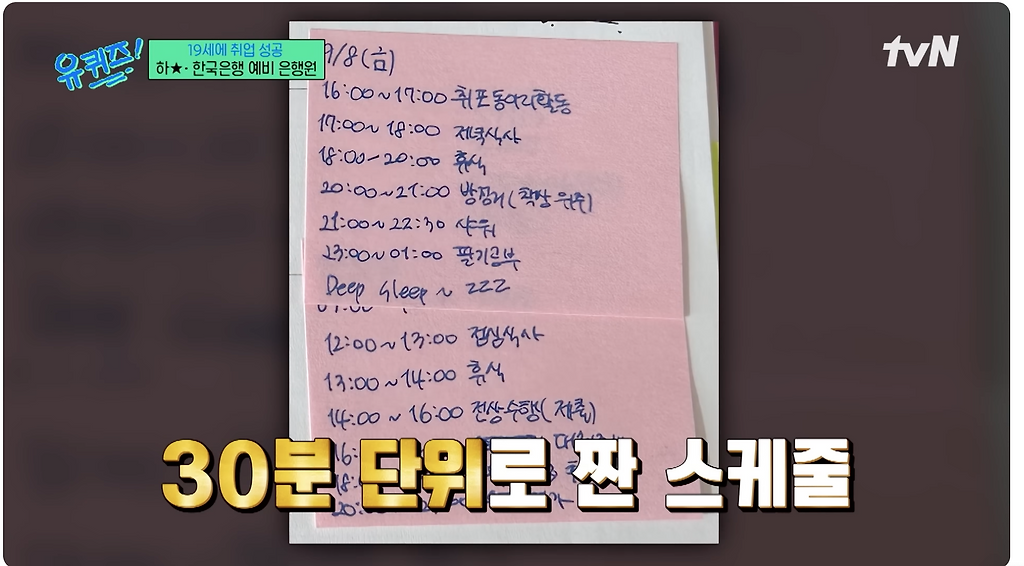 유퀴즈!
19세에 취업 성공
하★· 한국은행 예비 은행원
tvN
9/8(금)
16:00~17:00 취포동아리활동
17:00~18:00 저녁식사
18:00-20:00 휴식
20:00~21:00 방정리(책상 위주)
21:00~22:30 샤워
23:00~01:00 필기공부
Deep sleep ~ zzz
12:00~13:00 점심식사
13:00~14:00 휴식
14:00~16:00 전상수행(제출)
16:
18:
20:
30분 단위로 짠 스케줄